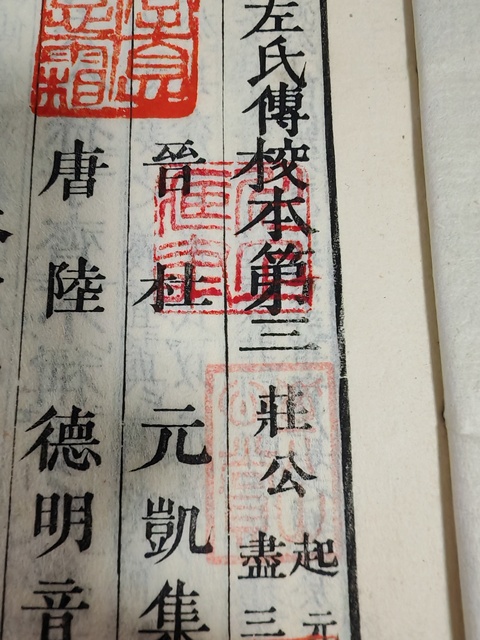 左氏傳校本第三
莊公
起元
盡三
晉 杜 元凱集
唐 陸 德明音